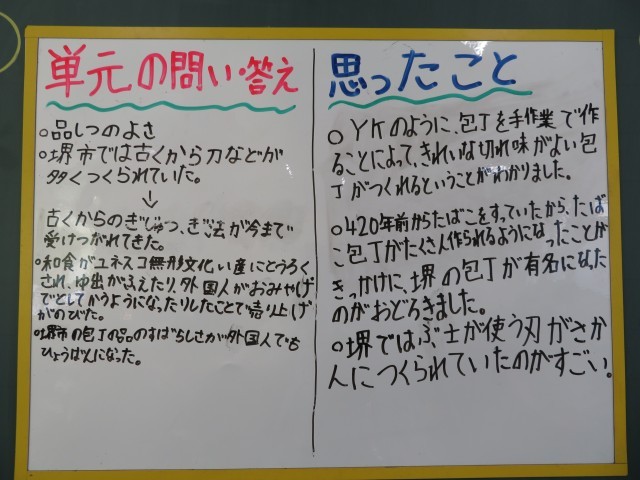 単元の問い・答え
○品しつのよさ
○堺市では古くから刀などが
多くつくられていた。
↓
古くからのぎじゅつ、ぎ法が今まで
受けつがれてきた。
○和食がユネスコ無形文化い産にとうろく
され、ゆ出がふえたり、外国人がおみやげ
でとしてかうようになったりしたことで売り上げ
がのびた。
○堺市の包丁の品のすばらしさが外国人でも
ひょうばんになった。
思ったこと
○YKのように、包丁を手作業で作
ることによって、きれいな切れ味がよい包
丁がつくれるということがわかりました。
○420年前からたばこをすっていたから、たば
こ包丁がたくさん作られるようになったことが
きっかけに、堺の包丁が有名になった
のがおどろきました。
○堺ではぶ士が使う刃がさか
んにつくられていたのがすごい。